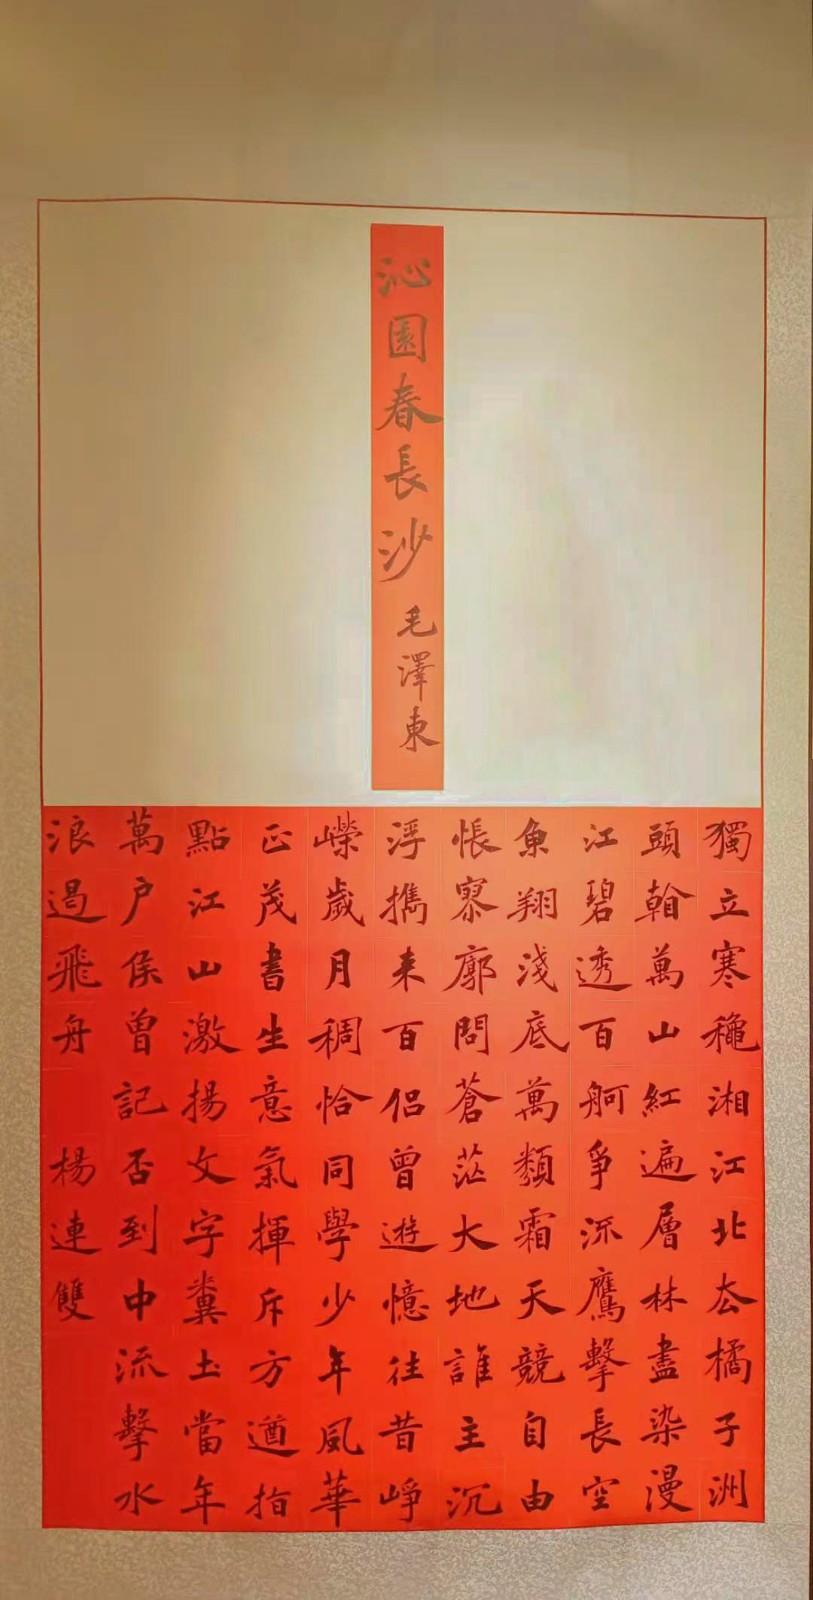 沁園春長沙 毛澤東
獨立寒穐湘江北去橘子洲
頭翰萬山紅遍層林盡染漫
江碧透百舸爭流鷹擊長空
魚翔淺底萬類霜天競自由
悵寥廓問蒼茫大地誰主沉
浮攜來百侶曾遊憶往昔崢
嶸歲月稠恰同學少年風華
正茂書生意氣揮斥方遒指
點江山激揚文字糞土當年
萬户侯曾記否到中流擊水
浪遏飛舟 楊連雙